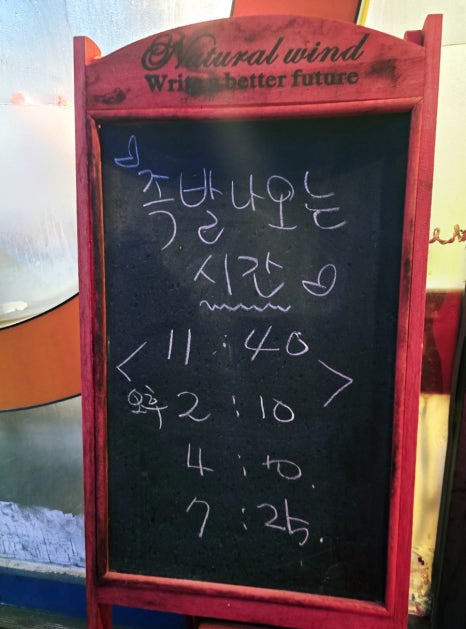 Natural wind
Write a better future
족발나오는
시간
< 11:40 >
오후 2:10
4:10.
7:25.